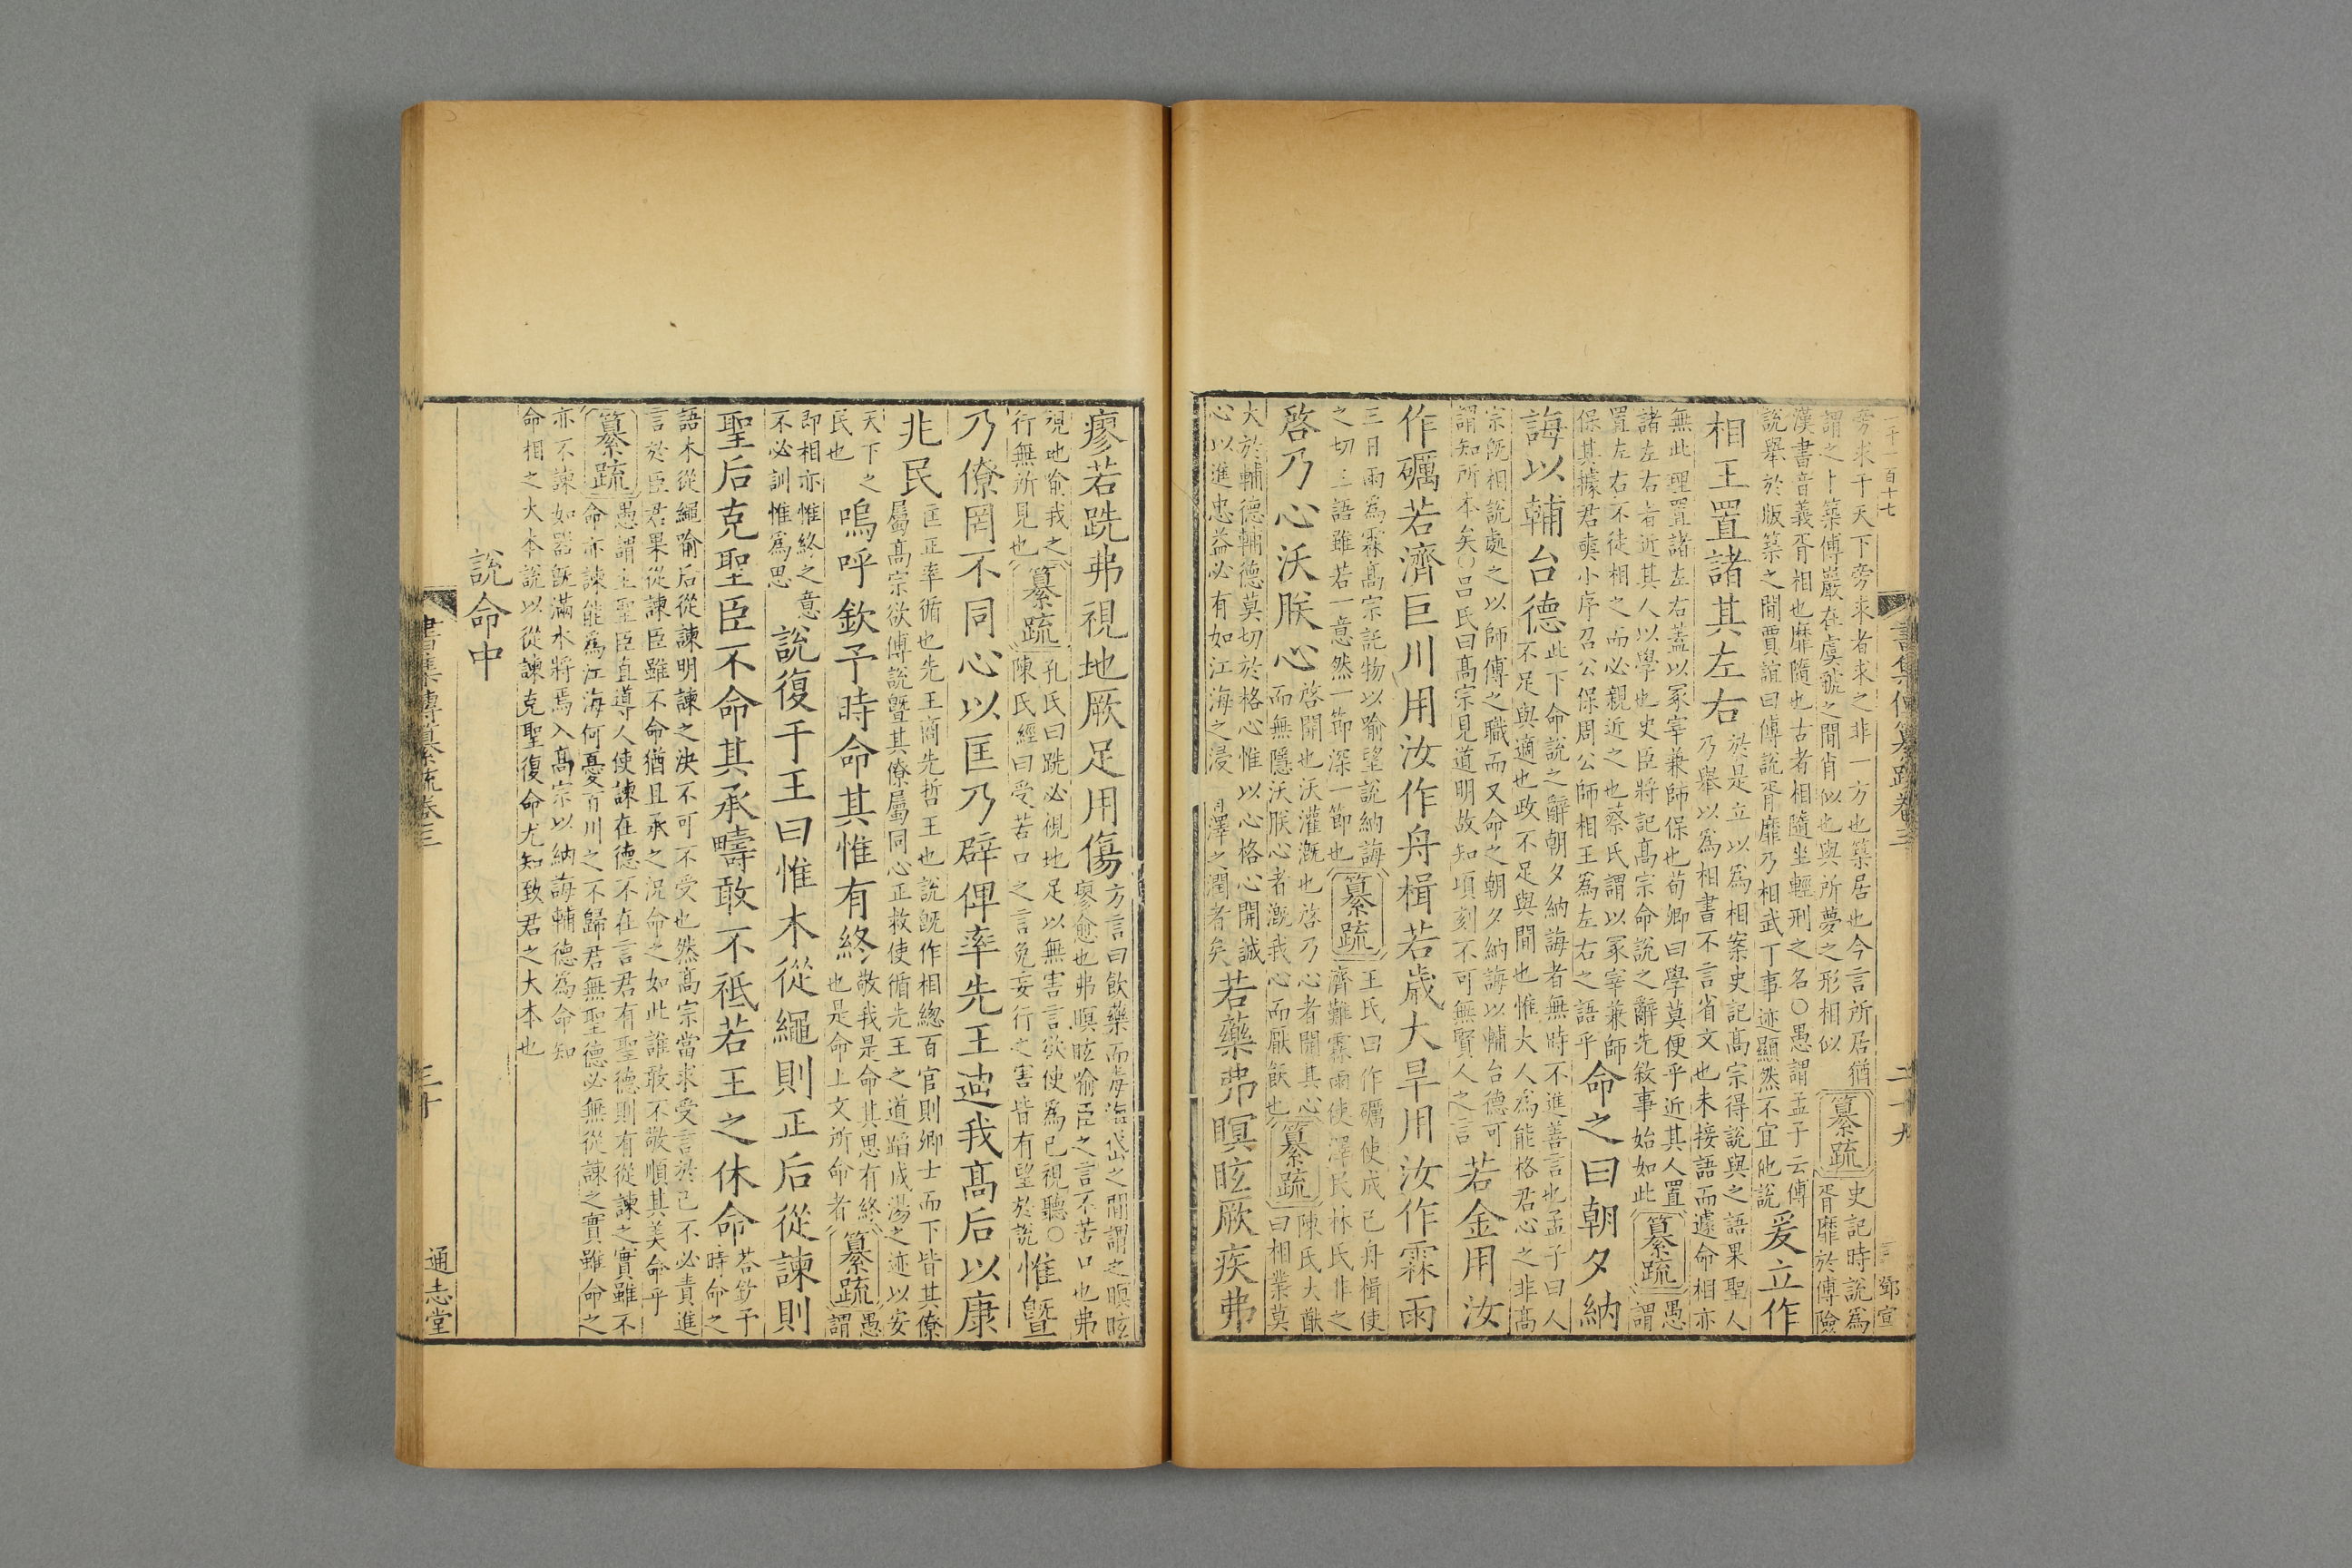 二十一 百十七
書集傳纂疏卷三 二十九 鄧宣
旁求于天下旁求者求之非一方也築居也今言所居猶謂之卜築傅巖在虞虢之間肖似也與所夢之形相似 纂疏 史記時說為胥靡於傅險
漢書音義胥相也靡隨也古者相隨坐輕刑之名○愚謂孟子云傅說舉於版築之間賈誼曰傅說胥靡乃相武丁事迹顯然不宜他說 爰立作
相王置諸其左右 於是立以為相案史記高宗得說與之語果聖人乃舉以為相書不言省文也未接語而遽命相亦
無此理置諸左右蓋以冢宰兼師保也荀卿曰學莫便乎近其人置諸左右者近其人以學也史臣將記高宗命說之辭先敘事始如此 纂疏 愚謂
置左右不徒相之而必親近之也蔡氏謂以冢宰兼師保其據君奭小序召公保周公師相王為左右之語乎 命之曰朝夕納
誨以輔台德 此下命說之辭朝夕納誨者無時不進善言也孟子曰人不足與適也政不足與間也惟大人為能格君心之非高
宗旣相說處之以師傅之職而又命之朝夕納誨以輔台德可謂知所本矣○呂氏曰高宗見道明故知頃刻不可無賢人之言 若金用汝
作礪若濟巨川用汝作舟楫若歲大旱用汝作霖雨
三日雨為霖高宗託物以喻望說納誨之切三語雖若一意然一節深一節也 纂疏 王氏曰作礪使成己舟楫使濟難霖雨使澤民林氏非之
啓乃心沃朕心 啓開也沃灌漑也啓乃心者開其心而無隱沃朕心者漑我心而厭飫也 纂疏 陳氏大猷曰相業莫
大於輔德輔德莫切於格心惟以心格心開誠心以進忠益必有如江海之浸膏澤之潤者矣 若藥弗瞑眩厥疾弗
瘳若跣弗視地厥足用傷 方言曰飲藥而毒海岱之間謂之瞑眩瘳愈也弗瞑眩喻臣之言不苦口也弗
視地喻我之行無所見也 纂疏 孔氏曰跣必視地足以無害言欲使為己視聽○陳氏經曰受苦口之言免妄行之害皆有望於說 惟暨
乃僚罔不同心以匡乃辟俾率先王迪我高后以康
兆民 匡正率循也先王商先哲王也說旣作相總百官則卿士而下皆其僚屬高宗欲傅說暨其僚屬同心正救使循先王之道蹈成湯之迹以安
天下之民也 嗚呼欽予時命其惟有終 敬我是命其思有終也是命上文所命者 纂疏 愚謂
即相亦惟終之意不必訓惟為思 說復于王曰惟木從繩則正后從諫則
聖后克聖臣不命其承疇敢不祗若王之休命 荅欽予時命之
語木從繩喻后從諫明諫之決不可不受也然高宗當求受言於己不必責進言於臣君果從諫臣雖不命猶且承之況命之如此誰敢不敬順其美命乎
纂疏 愚謂主聖臣直導人使諫在德不在言君有聖德則有從諫之實雖不命亦諫能為江海何憂百川之不歸君無聖德必無從諫之實雖命之
亦不諫如器旣滿水將焉入高宗以納誨輔德為命知命相之大本說以從諫克聖復命尤知致君之大本也
說命中
書集傳纂疏卷三 三十 通志堂